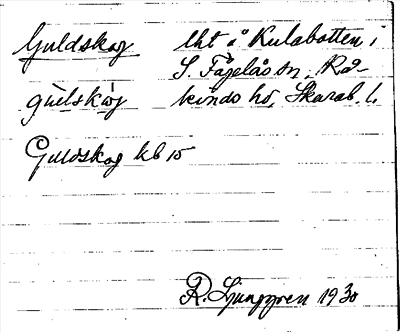 Guldskog lht å Kulabotten i
S. Fågelås sn, Kå-
gu̇lskȯg kinds hd, Skarab. l.
Guldskog kb 15
R. Ljunggren 1930